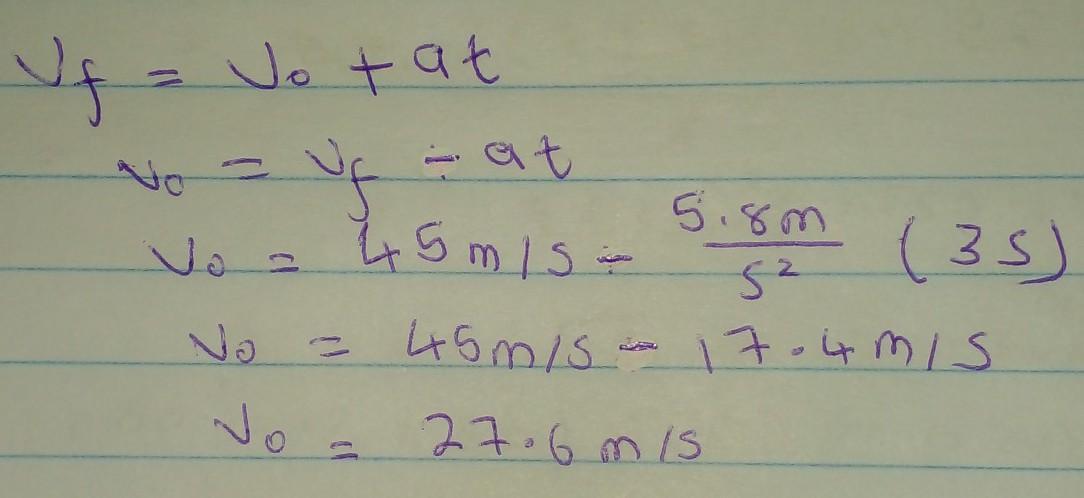 Vf = Vo + at
Vo = Vf - at
Vo = 45m/s - 5.8m/s² (3s)
Vo = 45m/s - 17.4m/s
Vo = 27.6m/s